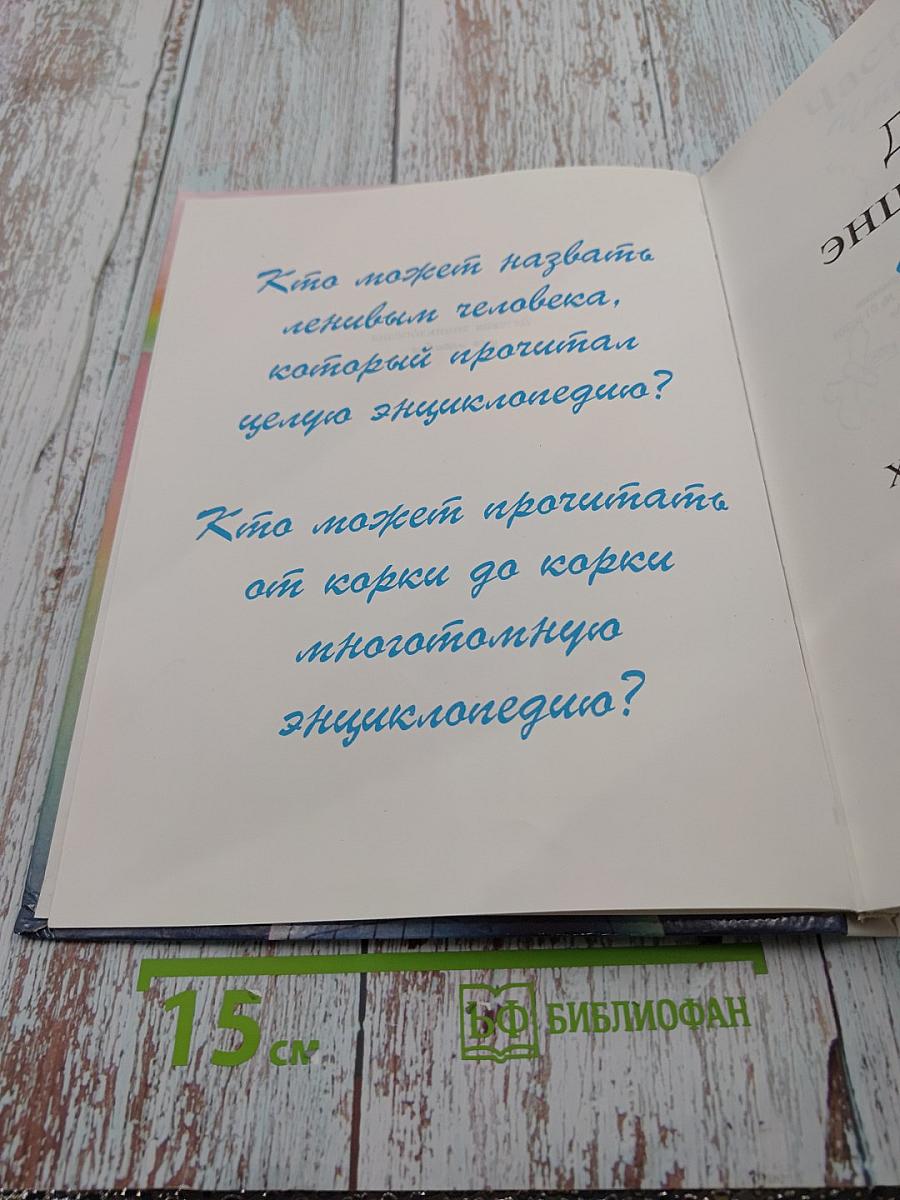 Кто может назвать
ленивым человека,
который прочитал
целую энциклопедию?
Кто может прочитать
от корки до корки
многотомную
энциклопедию?
15 см
БФ БИБЛИОФАН